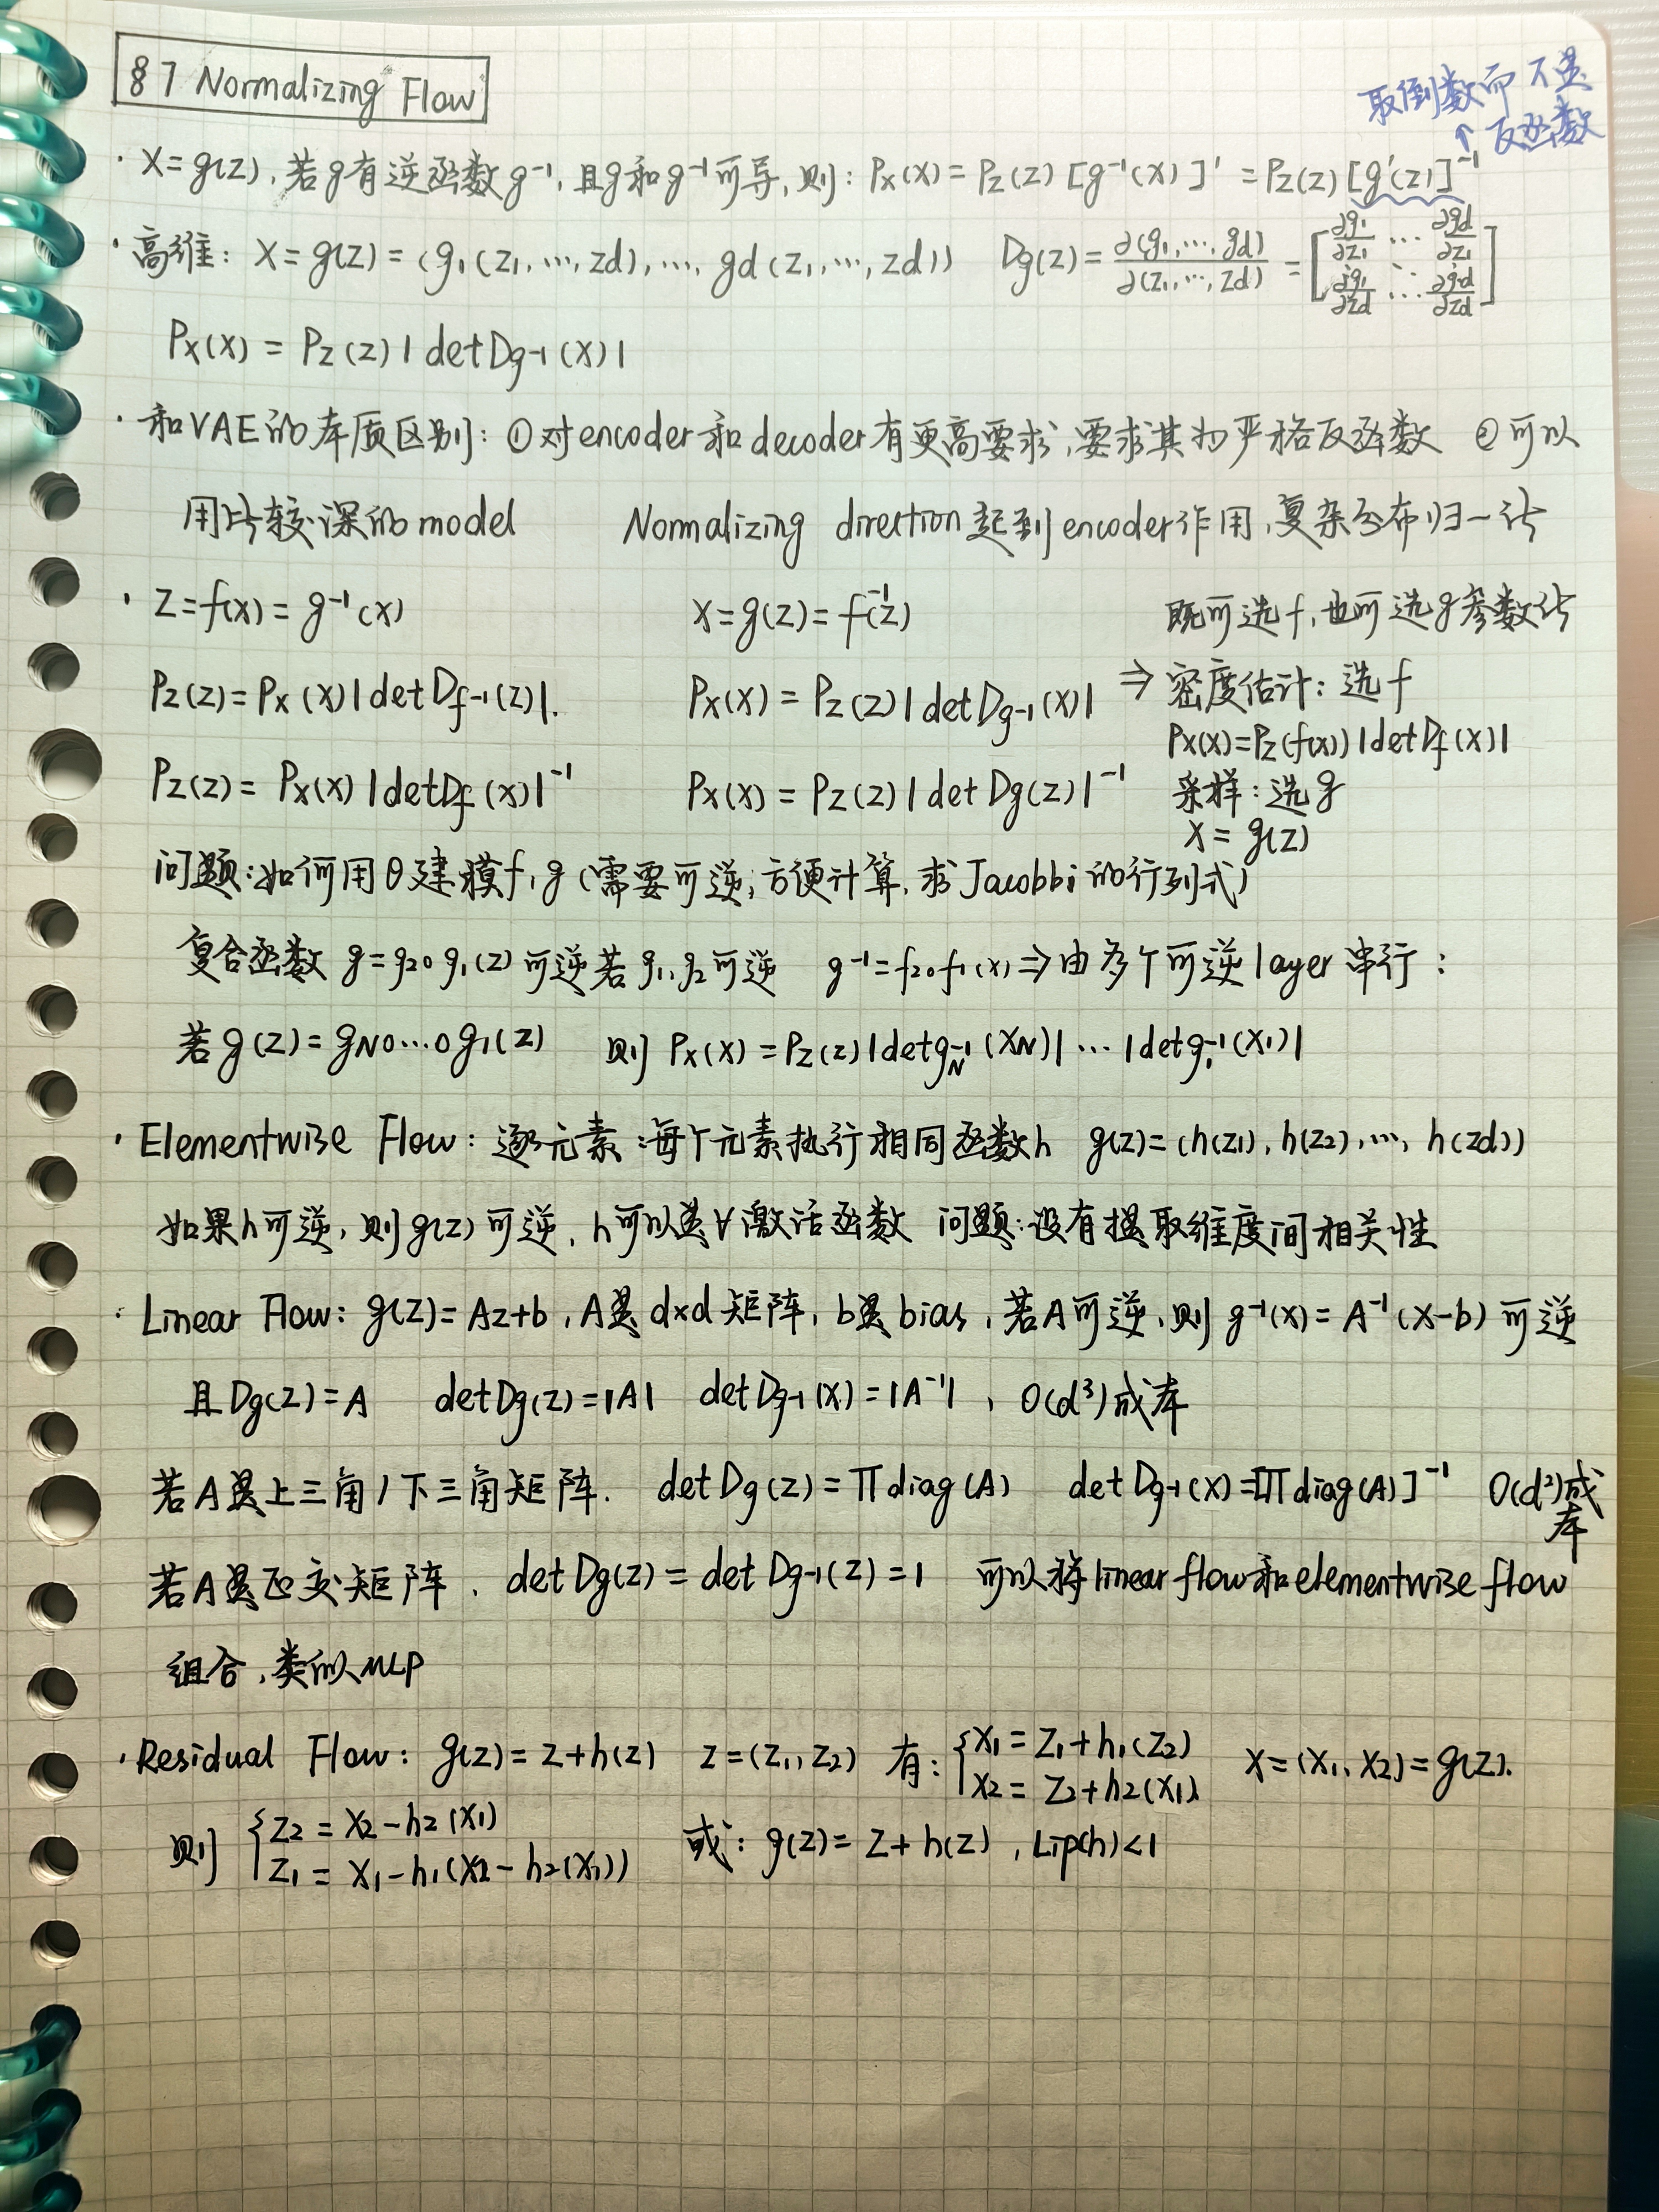 §7 Normalizing Flow
取倒数而不是
↑反函数
· X=g(z),若g有逆函数g⁻¹,且g和g⁻¹可导,则: Px(x)=Pz(z)[g⁻¹(x)]' =Pz(z)[g'(z)]⁻¹
· 高维: X=g(z)=(g₁(z₁,…,zd),…, gd(z₁,…,zd)) Dg(z)=∂(g₁,…,gd)/∂(z₁,…,zd)=[∂g₁/∂z₁ … ∂gd/∂z₁ ⋮ ⋱ ⋮ ∂g₁/∂zd … ∂gd/∂zd]
Px(x) = Pz(z) |detDg-1(x)|
· 和VAE的本质区别: ①对encoder和decoder有更高要求,要求其为严格反函数 ②可以
用比较深的model Normalizing direction起到encoder作用,复杂分布归一化
· Z=f(x)=g⁻¹(x) X=g(z)=f⁻¹(z) 既可选f,也可选g参数化
Pz(z)=Px(x)|detDf-1(z)|. Px(x)=Pz(z)|detDg-1(x)| ⇒ 密度估计: 选f
Px(x)=Pz(f(x))|detDf(x)|
Pz(z)= Px(x)|detDf(x)|⁻¹ Px(x)=Pz(z)|detDg(z)|⁻¹ 采样:选g
X=g(z)
问题:如何用θ建模f,g(需要可逆;方便计算,求Jacobbi的行列式)
复合函数 g=g₂∘g₁(z)可逆若g₁,g₂可逆 g⁻¹=f₂∘f₁(x)⇒由多个可逆layer串行:
若g(z)=gN∘…∘g₁(z) 则 Px(x)=Pz(z)|detg_N⁻¹(XN)|…|detg₁⁻¹(X₁)|
· Elementwise Flow: 逐元素:每个元素执行相同函数h g(z)=(h(z₁),h(z₂),…, h(zd))
如果h可逆,则g(z)可逆,h可以是∀激活函数 问题:没有提取维度间相关性
· Linear Flow: g(z)=Az+b,A是d×d矩阵,b是bias,若A可逆,则g⁻¹(x)=A⁻¹(x-b)可逆
且Dg(z)=A detDg(z)=|A| detDg-1(x)=|A⁻¹|, O(d³)成本
若A是上三角/下三角矩阵. detDg(z)=∏diag(A) detDg-1(x)=[∏diag(A)]⁻¹ O(d²)成本
若A是正交矩阵, detDg(z)=detDg-1(z)=1 可以将linear flow和elementwise flow
组合,类似MLP
· Residual Flow: g(z)=z+h(z) z=(z₁,z₂) 有:{X₁=Z₁+h₁(Z₂) X₂=Z₂+h₂(X₁) X=(X₁,X₂)=g(z).
则{Z₂=X₂-h₂(X₁) Z₁=X₁-h₁(X₂-h₂(X₁)) 或: g(z)=z+h(z),Lip(h)<1